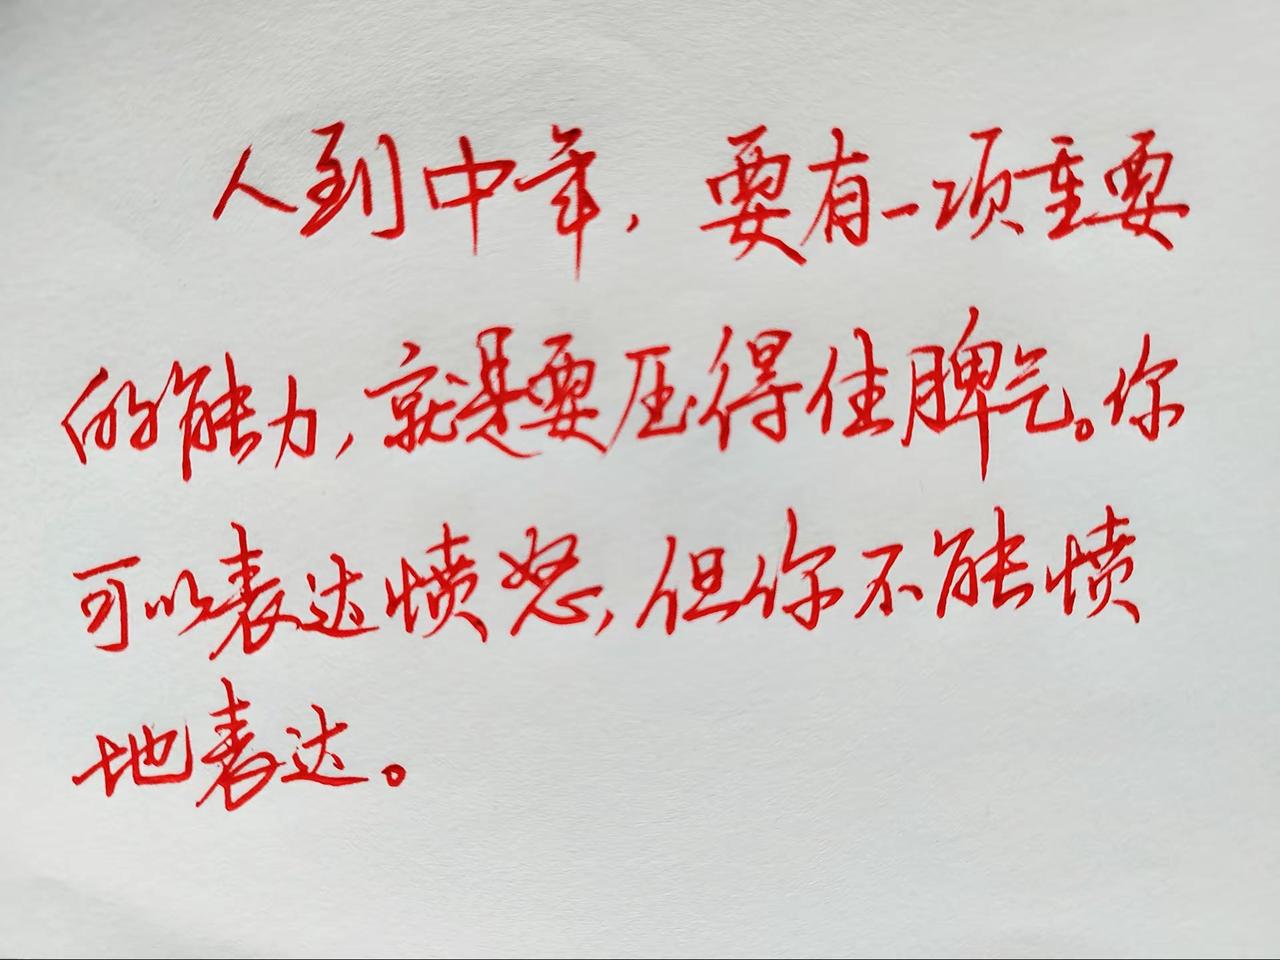 人到中年，要有一项重要
的能力，就是要压得住脾气。你
可以表达愤怒，但你不能愤
地表达。